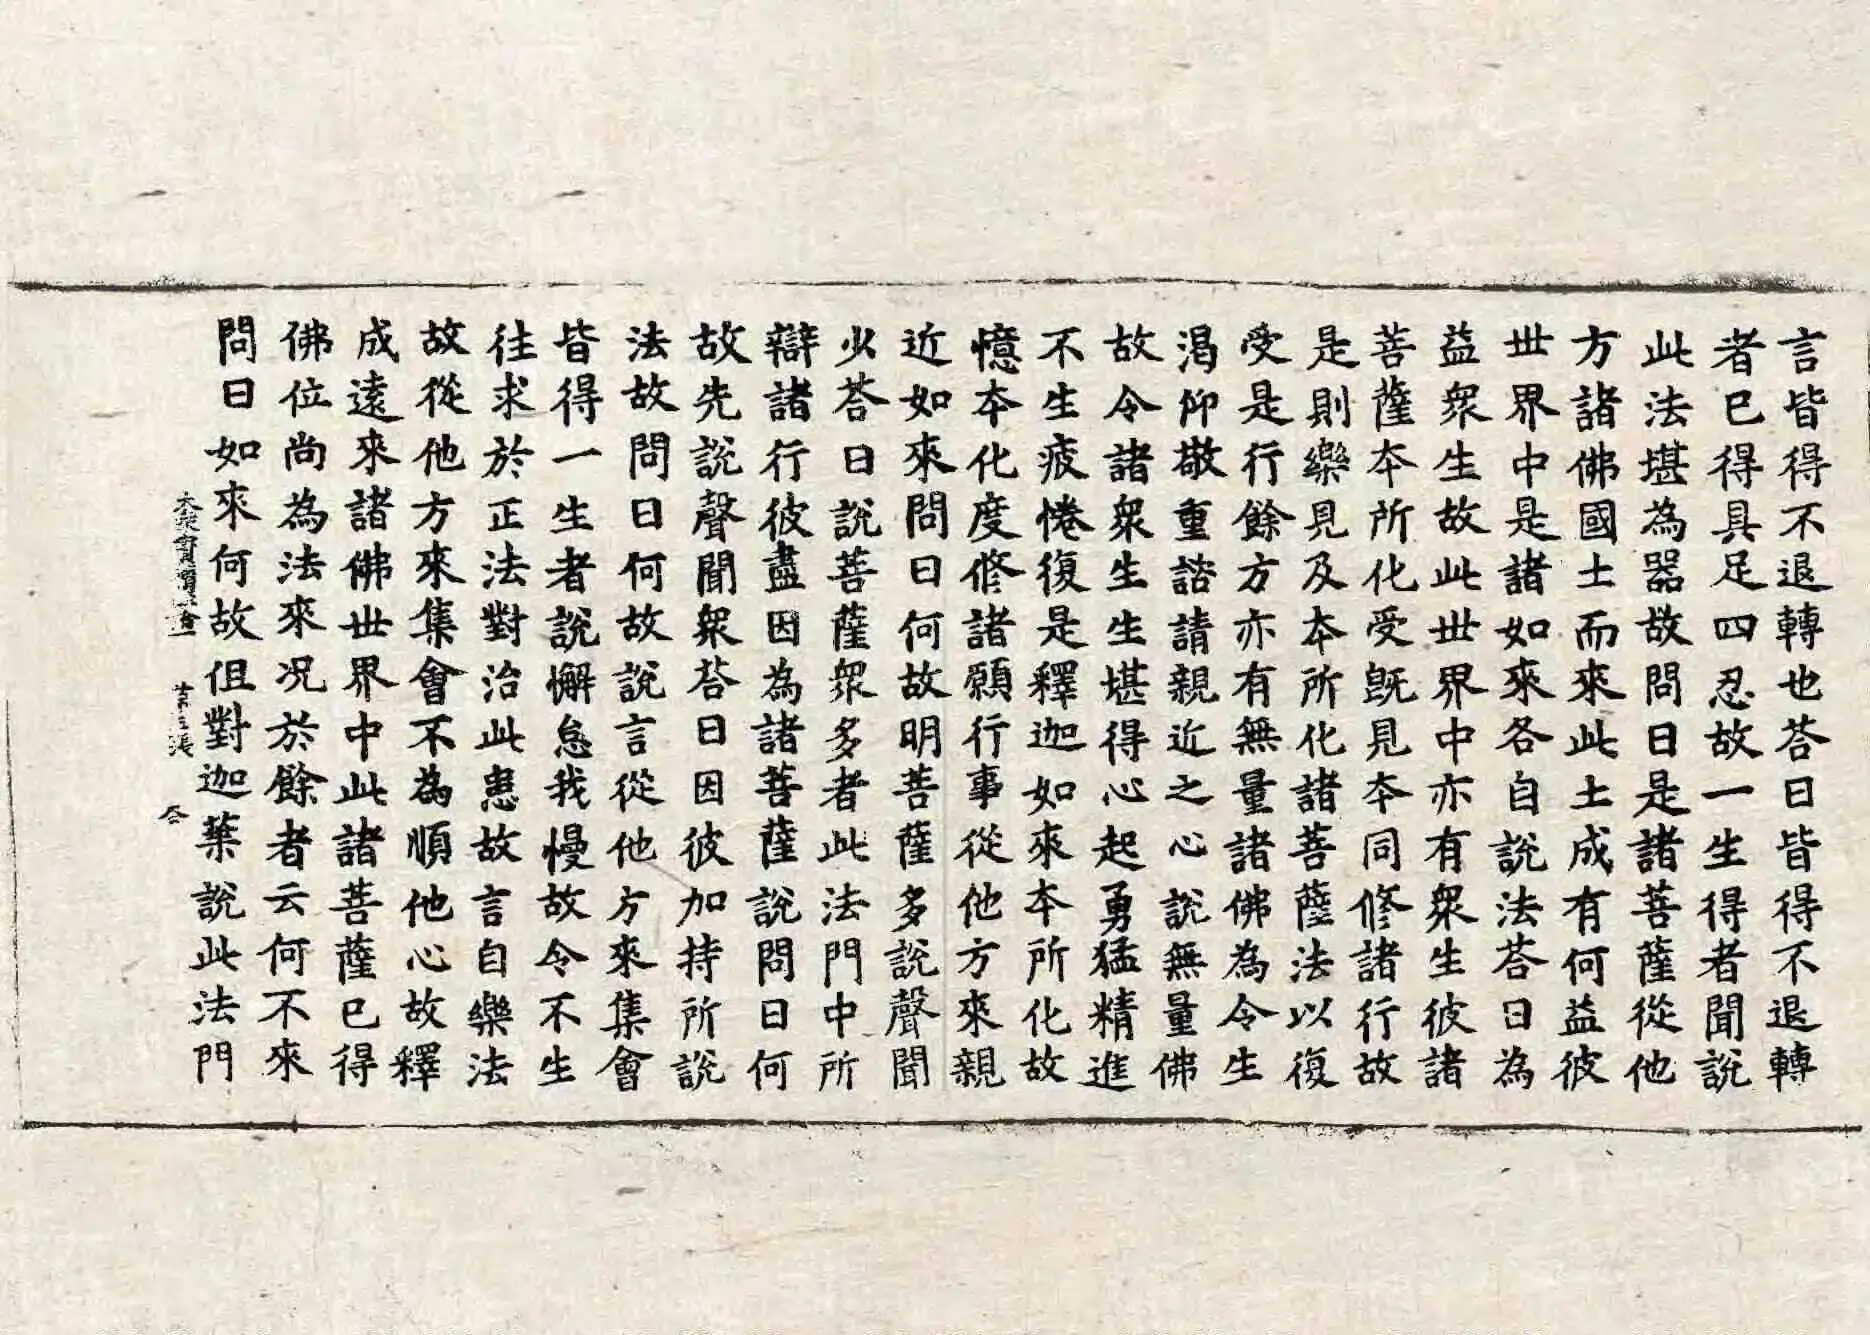 言皆得不退轉也荅曰皆得不退轉
者已得具足四忍故一生得者聞說
此法堪為器故問曰是諸菩薩從他
方諸佛國土而來此土成有何益彼
世界中是諸如來各自說法荅曰為
益衆生故此世界中亦有衆生彼諸
菩薩本所化受旣見本同修諸行故
是則樂見及本所化諸菩薩法以復
受是行餘方亦有無量諸佛為令生
渴仰敬重諮請親近之心說無量佛
故令諸衆生生堪得心起勇猛精進
不生疲惓復是釋迦如來本所化故
憶本化度修諸願行事從他方來親
近如來問曰何故明菩薩多說聲聞
少荅曰說菩薩衆多者此法門中所
辯諸行彼盡因為諸菩薩說問曰何
故先說聲聞衆荅曰因彼加持所說
法故問曰何故說言從他方來集會
皆得一生者說懈怠我慢故令不生
往求於正法對治此患故言自樂法
故從他方來集會不為順他心故釋
成遠來諸佛世界中此諸菩薩已得
佛位尚為法來况於餘者云何不來
問曰如來何故伹對迦葉說此法門